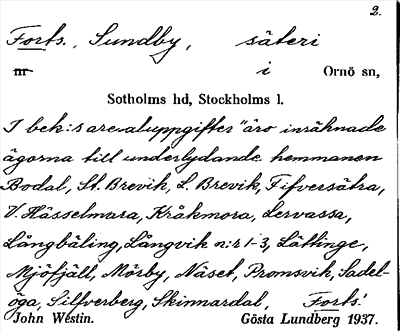 2.
Forts., Sundby, säteri
nr i Ornö sn,
Sotholms hd, Stockholms l.
I bek:s arealuppgifter "äro inräknade
ägorna till underlydande hemmanen
Bodal, St. Brevik, L. Brevik, Fifversätra,
V. Hässelmara, Kråkmora, Lervassa,
Långbäling, Långvik n:r 1-3, Lättinge,
Mjöfjäll, Mörby, Näset, Promsvik, Sadel-
öga, Silfverberg, Skinnardal, Forts!
John Westin. Gösta Lundberg 1937.